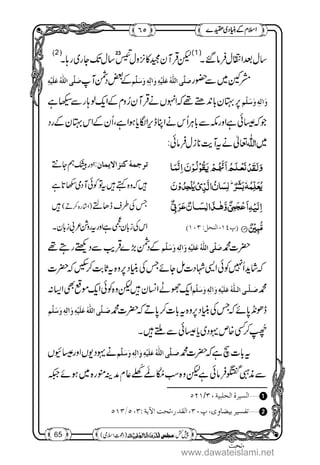 اسلام کے بنیادی عقیدے
٦٥
سال بعد انتقال فرما گئے۔(1) لیکن قرآن مجید کا نزول تئیس23 سال تک جاری رہا۔(2)
مشرکین میں سے بعض کے دشمن آپ صَلَّی اللّٰهُ عَلَیْهِ
وَاٰلِهٖ وَسَلَّم پر بہتان باندھتے تھے کہ انہوں نے قرآن روم کے ایک لوہار سے سیکھا ہے
جو کہ عیسائی ہے اور مکہ سے باہر اس نے اپنا ڈیرا لگایا ہوا ہے، اُن کے اس بہتان کے رد
میں اللّٰه تعالٰی نے یہ آیت نازل فرمائی:
وَلَقَدْ نَعْلَمُ اَنَّهُمْ یَقُوْلُوْنَ اِنَّمَا
یُعَلِّمُهٗ بَشَرٌؕ-لِسَانُ الَّذِیْ یُلْحِدُوْنَ
اِلَیْهِ اَعْجَمِیٌّ وَّ هٰذَا لِسَانٌ عَرَبِیٌّ
مُّبِیْنٌ (پ١٤، النحل: ١٠٣)
ترجمۂ کنز الایمان: اور بیشک ہم جانتے ہیں
کہ وہ کہتے ہیں یہ تو کوئی آدمی سکھاتا ہے
جس کی طرف ڈھالتے (اشارہ کرتے) ہیں
اس کی زبان عجمی ہے اور یہ روشن عربی زبان۔
حضرت محمد صَلَّی اللّٰهُ عَلَیْهِ وَاٰلِهٖ وَسَلَّم کے دشمن بڑے قریب سے دیکھتے رہے تھے
کہ شاید انہیں کوئی ایسی شہادت مل جائے جس کی بنیاد پر وہ یہ ثابت کر سکیں کہ حضرت
محمد صَلَّی اللّٰهُ عَلَیْهِ وَاٰلِهٖ وَسَلَّم ایک جھوٹے انسان ہیں لیکن وہ کوئی ایک موقع بھی ایسا نہ
ڈھونڈ پائے کہ جس کی بنیاد پر وہ یہ بات کر پاتے کہ حضرت محمد صَلَّی اللّٰهُ عَلَیْهِ وَاٰلِهٖ وَسَلَّم
چھپ کر کسی خاص یہودی یا عیسائی سے ملتے ہیں۔
یہ بات سچ ہے کہ حضرت محمد صَلَّی اللّٰهُ عَلَیْهِ وَاٰلِهٖ وَسَلَّم نے یہودیوں اور عیسائیوں
سے مذہبی گفتگو فرمائی ہے لیکن وہ سب مکالمے کھلے عام مدینہ منورہ میں ہوئے ہیں جبکہ
1 ......السیرة الحلبیة، ٣/٥٢١
2 ......تفسیر بیضاوی، پ٣٠، القدر، تحت الآیة: ٣، ٥/٥١٣
65
www.dawateislami.net